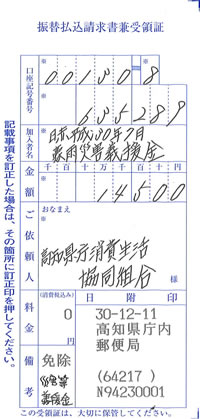 振替払込請求書兼受領証
口座記号番号
00130 8
635289
加入者名
日赤平成30年7月
豪雨災害義援金
金額
千 百 十 万 千 百 十 円
14500
ご依頼人
おなまえ
高知県庁消費生活
協同組合
様
料金
(消費税込み)
0
円
備考
免除
義援金
日附印
30-12-11
高知県庁内
郵便局
(64217)
N94230001
記載事項を訂正した場合は、その箇所に訂正印を押してください。
この受領証は、大切に保管してください。